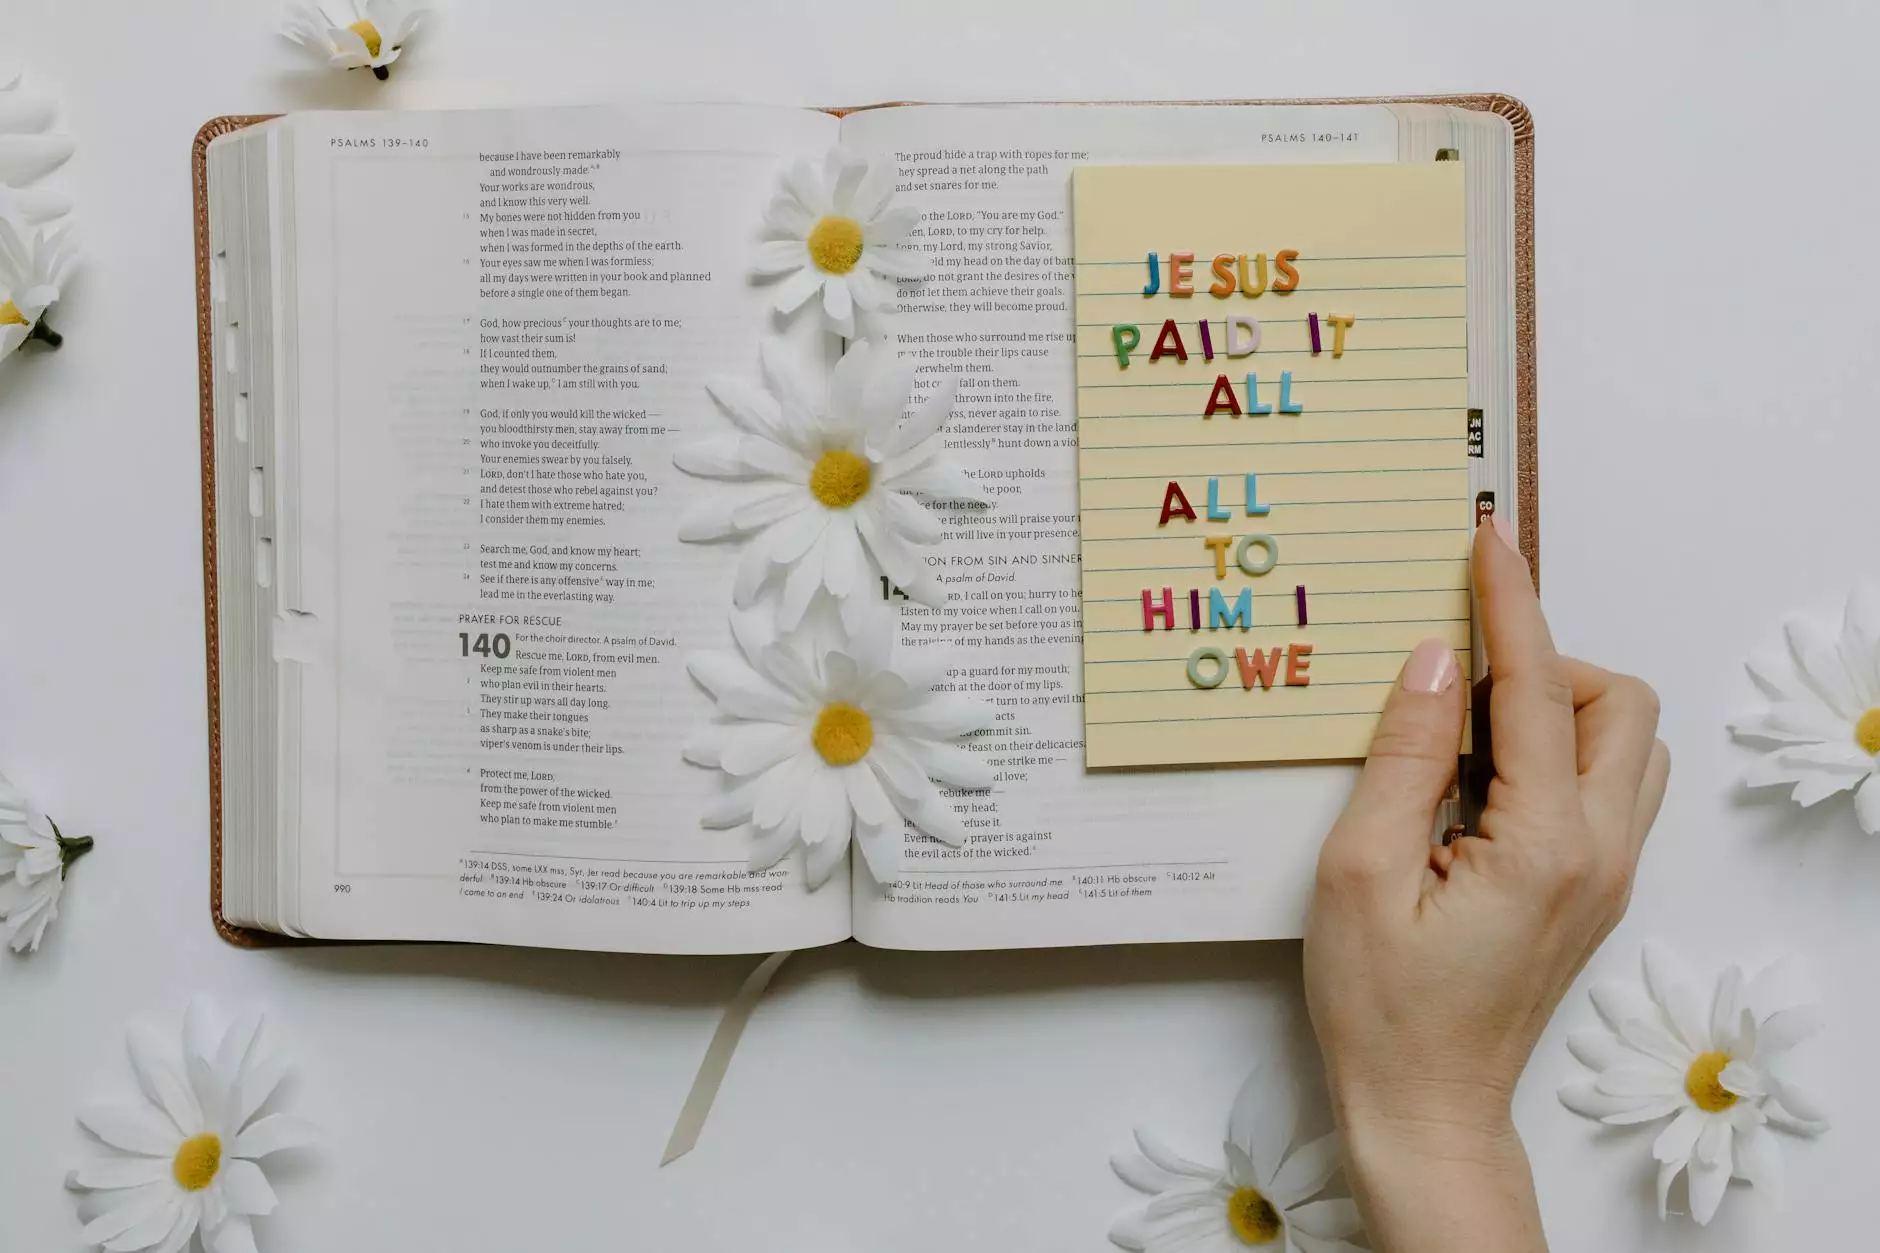 PSALMS 139–140
because I have been remarkably
and wondrously made.
Your works are wondrous,
and I know this very well.
15 My bones were not hidden from you
when I was made in secret,
when I was formed in the depths of the earth.
16 Your eyes saw me when I was formless;
all my days were written in your book and planned
before a single one of them began.
17 God, how precious your thoughts are to me;
how vast their sum is!
18 If I counted them,
they would outnumber the grains of sand;
when I wake up, I am still with you.
19 God, if only you would kill the wicked —
you bloodthirsty men, stay away from me —
20 who invoke you deceitfully.
Your enemies swear by you falsely.
21 LORD, don't I hate those who hate you,
and detest those who rebel against you?
22 I hate them with extreme hatred;
I consider them my enemies.
23 Search me, God, and know my heart;
test me and know my concerns.
24 See if there is any offensive way in me;
lead me in the everlasting way.
PRAYER FOR RESCUE
140 For the choir director. A psalm of David.
Rescue me, LORD, from evil men.
Keep me safe from violent men
2 who plan evil in their hearts.
They stir up wars all day long.
3 They make their tongues
as sharp as a snake's bite;
viper's venom is under their lips.
4 Protect me, LORD,
from the power of the wicked.
Keep me safe from violent men
who plan to make me stumble.
139:14 DSS, some LXX mss, Syr, Jer read because you are remarkable and won-
derful 139:14 Hb obscure 139:17 Or difficult 139:18 Some Hb mss read
I come to an end 139:24 Or idolatrous 140:4 Lit to trip up my steps
990
PSALMS 140–141
The proud hide a trap with ropes for me;
hey spread a net along the path
and set snares for me.
o the LORD, "You are my God."
LORD, to my cry for help.
LORD, my Lord, my strong Savior,
my head on the day of
LORD, do not grant the desires of the
do not let them achieve their goals.
Otherwise, they will become proud.
9 When those who surround me rise
the trouble their lips cause
verwhelm them.
hot fall on them.
thrown into the fire,
never again to rise.
a slanderer stay in the land
hunt down a
the LORD upholds
he poor,
for the needy.
righteous will praise your
will live in your presence.
FROM SIN AND SINNER
A psalm of David.
I call on you; hurry to
Listen to my voice when I call on you.
May my prayer be set before you as
the of my hands as the
up a guard for my mouth;
watch at the door of my lips.
turn to any evil
acts
commit sin.
feast on their delicacies.
one strike me —
love;
rebuke me —
my head;
refuse it.
Even prayer is against
the evil acts of the wicked.
140:9 Lit Head of those who surround me 140:11 Hb obscure 140:12 Alt
Hb tradition reads You 141:5 Lit my head 141:5 Lit of them
JESUS
PAID IT
ALL
ALL
TO
HIM I
OWE
JN
AC
RM
CO